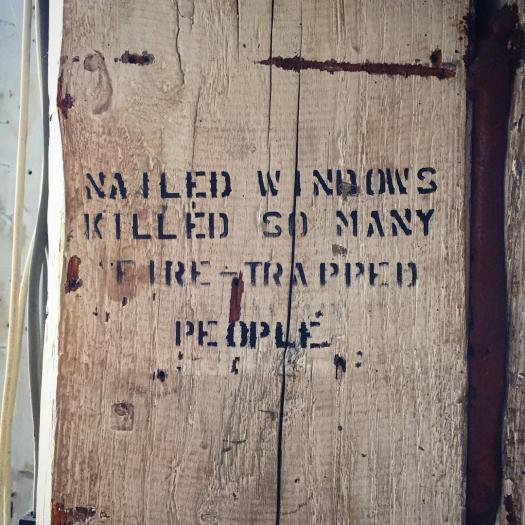 NAILED WINDOWS
KILLED SO MANY
FIRE-TRAPPED
PEOPLE